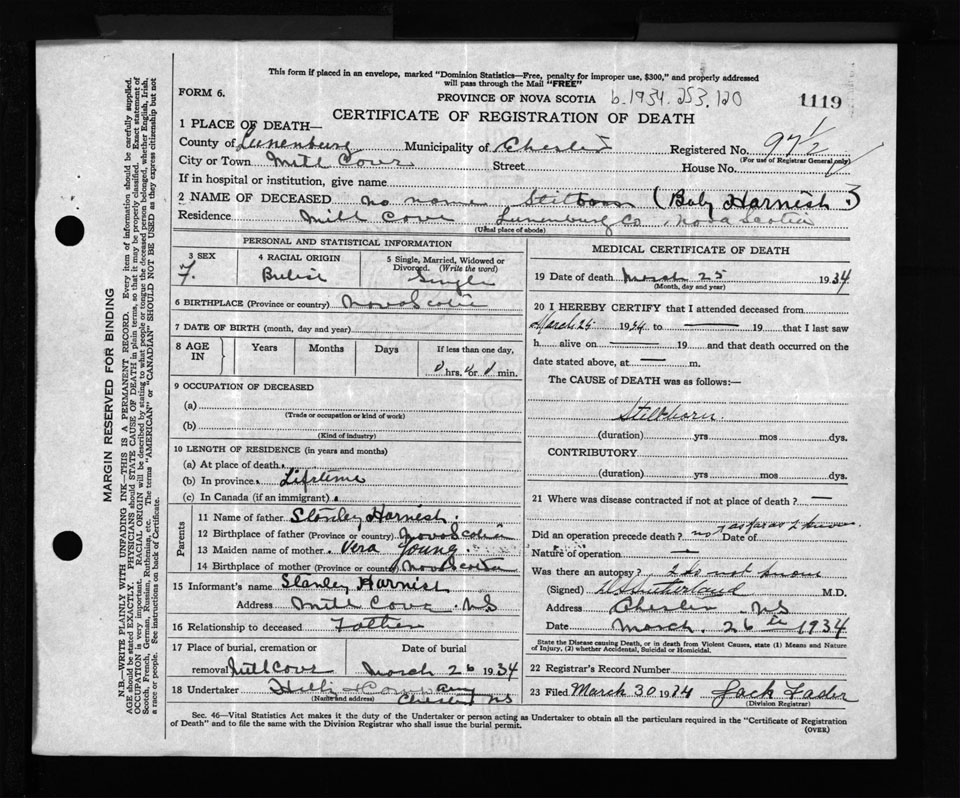 This form if placed in an envelope, marked "Dominion Statistics—Free, penalty for improper use, $300," and properly addressed
will pass through the Mail "FREE"
FORM 6.
PROVINCE OF NOVA SCOTIA b.1934.253.120
1119
CERTIFICATE OF REGISTRATION OF DEATH
1 PLACE OF DEATH—
County of Lunenburg Municipality of Chester Registered No. 97 1/2
(For use of Registrar General only)
City or Town Mill Cove Street House No.
If in hospital or institution, give name
2 NAME OF DECEASED no name Stilborn (Baby Harnish.)
Residence Mill Cove Lunenburg Co Nova Scotia
(Usual place of abode)
PERSONAL AND STATISTICAL INFORMATION
3 SEX
F.
4 RACIAL ORIGIN
5 Single, Married, Widowed or
Divorced. (Write the word)
Single
6 BIRTHPLACE (Province or country) Nova Scotia
7 DATE OF BIRTH (month, day and year)
8 AGE
IN
Years Months Days If less than one day,
0 hrs. or 0 min.
9 OCCUPATION OF DECEASED
(a)
(Trade or occupation or kind of work)
(b)
(Kind of industry)
10 LENGTH OF RESIDENCE (in years and months)
(a) At place of death
(b) In province Lifetime
(c) In Canada (if an immigrant)
Parents
11 Name of father Stanley Harnish.
12 Birthplace of father (Province or country) Nova Scotia
13 Maiden name of mother Vera Young.
14 Birthplace of mother (Province or country) Nova Scotia
15 Informant's name Stanley Harnish
Address Mill Cove. NS
16 Relationship to deceased Father
17 Place of burial, cremation or Date of burial
removal Mill Cove March 26 1934
18 Undertaker Company
(Name and address) Chester NS
MEDICAL CERTIFICATE OF DEATH
19 Date of death March 25 1934
(Month, day and year)
20 I HEREBY CERTIFY that I attended deceased from
March 25 1934 to — 19 that I last saw
h alive on — 19 and that death occurred on the
date stated above, at — m.
The CAUSE of DEATH was as follows:—
Stillborn.
(duration) yrs mos dys.
CONTRIBUTORY
(duration) yrs mos dys.
21 Where was disease contracted if not at place of death? —
Did an operation precede death? no Date of as far as I know
Nature of operation —
Was there an autopsy? I do not know
(Signed) M.D.
Address Chester. NS
Date March. 26th 1934
State the Disease causing Death, or in death from Violent Causes, state (1) Means and Nature
of Injury, (2) whether Accidental, Suicidal or Homicidal.
22 Registrar's Record Number
23 Filed March 30 1934 Jack Fader
(Division Registrar)
Sec. 46—Vital Statistics Act makes it the duty of the Undertaker or person acting as Undertaker to obtain all the particulars required in the "Certificate of Registration
of Death" and to file the same with the Division Registrar who shall issue the burial permit.
(OVER)
MARGIN RESERVED FOR BINDING
N.B.—WRITE PLAINLY WITH UNFADING INK—THIS IS A PERMANENT RECORD. Every item of information should be carefully supplied.
AGE should be stated EXACTLY. PHYSICIANS should STATE CAUSE OF DEATH in plain terms, so that it may be properly classified. Exact statement of
OCCUPATION is very important. RACIAL ORIGIN will be described by stating to what people or tongue the deceased person belonged, whether English, Irish,
Scotch, French, German, Russian, Ruthenian, etc. The terms "AMERICAN" or "CANADIAN" SHOULD NOT BE USED as they express citizenship but not
a race or people. See instructions on back of Certificate.